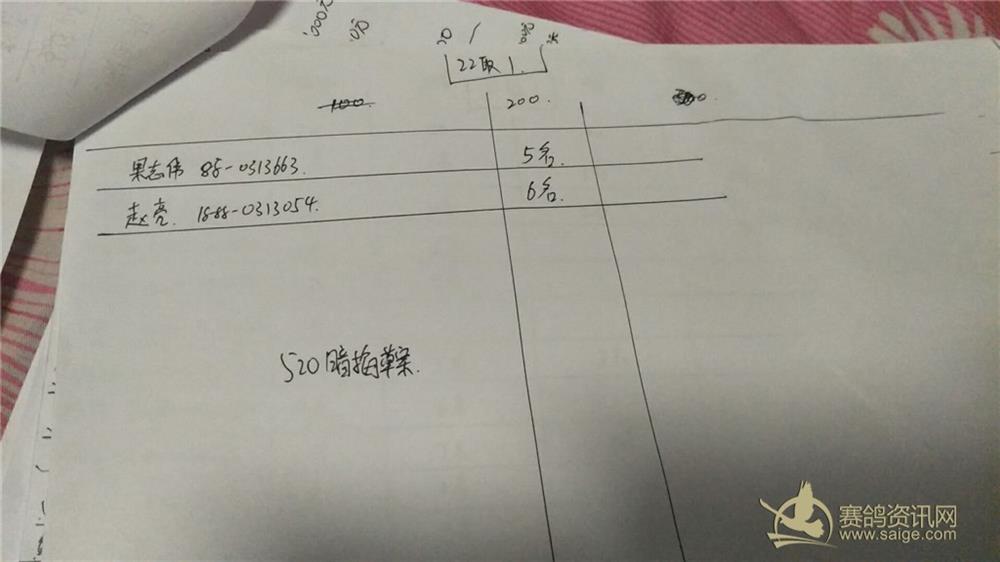 22取1.
100. 200.
果志伟 88-0313663. 5名.
赵亮. 18-88-0313054. 6名.
520暗插草案.
赛鸽资讯网
www.saige.com